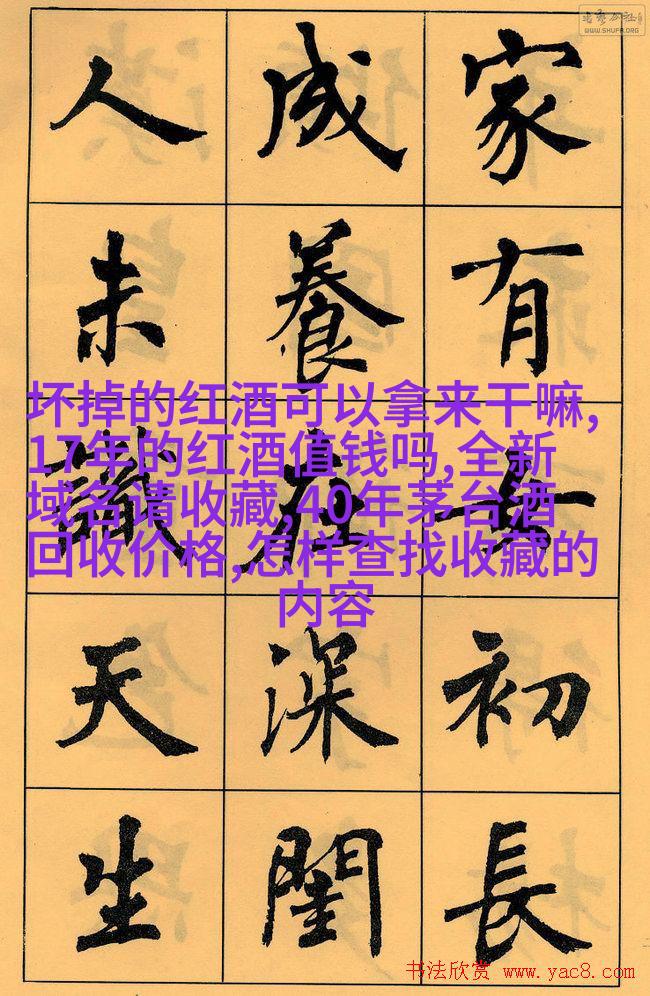 WWW.SHUFA.ORG
家有女初長
成養在深閨
人未識天生
坏掉的红酒可以拿来干嘛,
17年的红酒值钱吗,全新
域名请收藏,40年茅台酒
回收价格,怎样查找收藏的
内容
书法欣赏 www.yac8.com